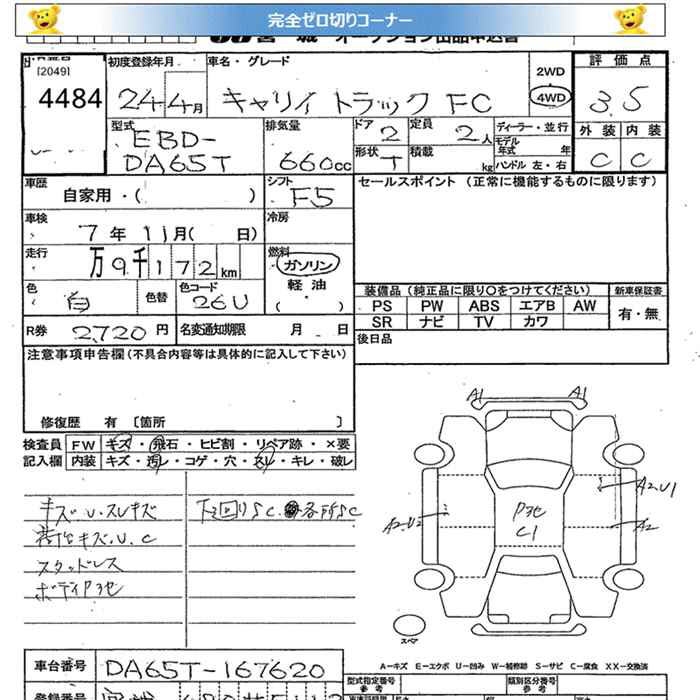 完全ゼロ切りコーナー
[2049]
4484
初度登録年月
24年4月
車名・グレード
キャリイ トラック FC
2WD
4WD
評価点
3.5
外装 内装
C C
型式
EBD-
DA65T
排気量
660cc
ドア 2
定員 2人
形状 T
積載 kg
ディーラー・並行
モデル年式 年
ハンドル 左・右
車歴
自家用・( )
シフト F5
セールスポイント (正常に機能するものに限ります)
車検
7年11月( 日)
冷房
走行
万9千172km
燃料
ガソリン
軽油
( )
色
白
色替
色コード
26U
装備品 (純正品に限り○をつけてください)
新車保証書
PS PW ABS エアB AW
有・無
SR ナビ TV カワ
R券 2,720円
名変通知期限 月 日
後日品
注意事項申告欄(不具合内容等は具体的に記入して下さい)
修復歴 有 〔箇所 〕
検査員
記入欄
FW キズ・飛石・ヒビ割・リペア跡・×要
内装 キズ・汚レ・コゲ・穴・スレ・キレ・破レ
キズU.スレキズ
荷台キズ.U.C
スタッドレス
ボディP3セ
下回りSC 各所SC
A1
A1
A2.U1
A2.U2
A2
P3セ
C1
スペア
A－キズ E－エクボ U－凹み W－補修跡 S－サビ C－腐食 XX－交換済
車台番号
DA65T-167620
型式指定番号
参考
類別区分番号
参考
登録番号